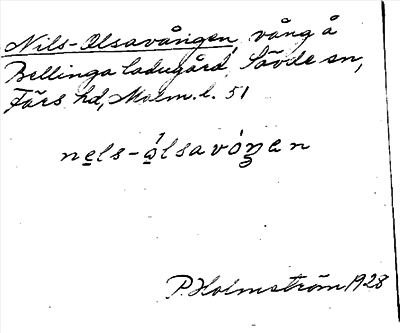 Nils-Olsavången, vång å
Bellinga ladugård, Sövde sn,
Färs hd, Malm. l. 51
nels-ólsavóŋen
P. Holmström 1928